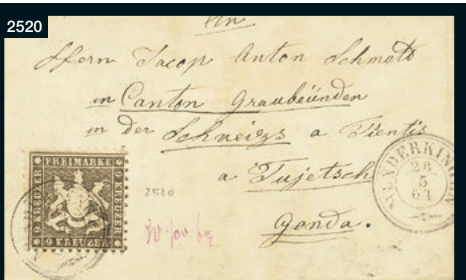 2520
An
Herrn Jacop Anton Schmott
in Canton Graubeünden
in der Schweizs a Tientis
a Tujetsch
Gonda.
FREIMARKE
9 KREUZER
9 KREUZER
9 KREUZER
2520
MUNDERKINGEN
28
5
64